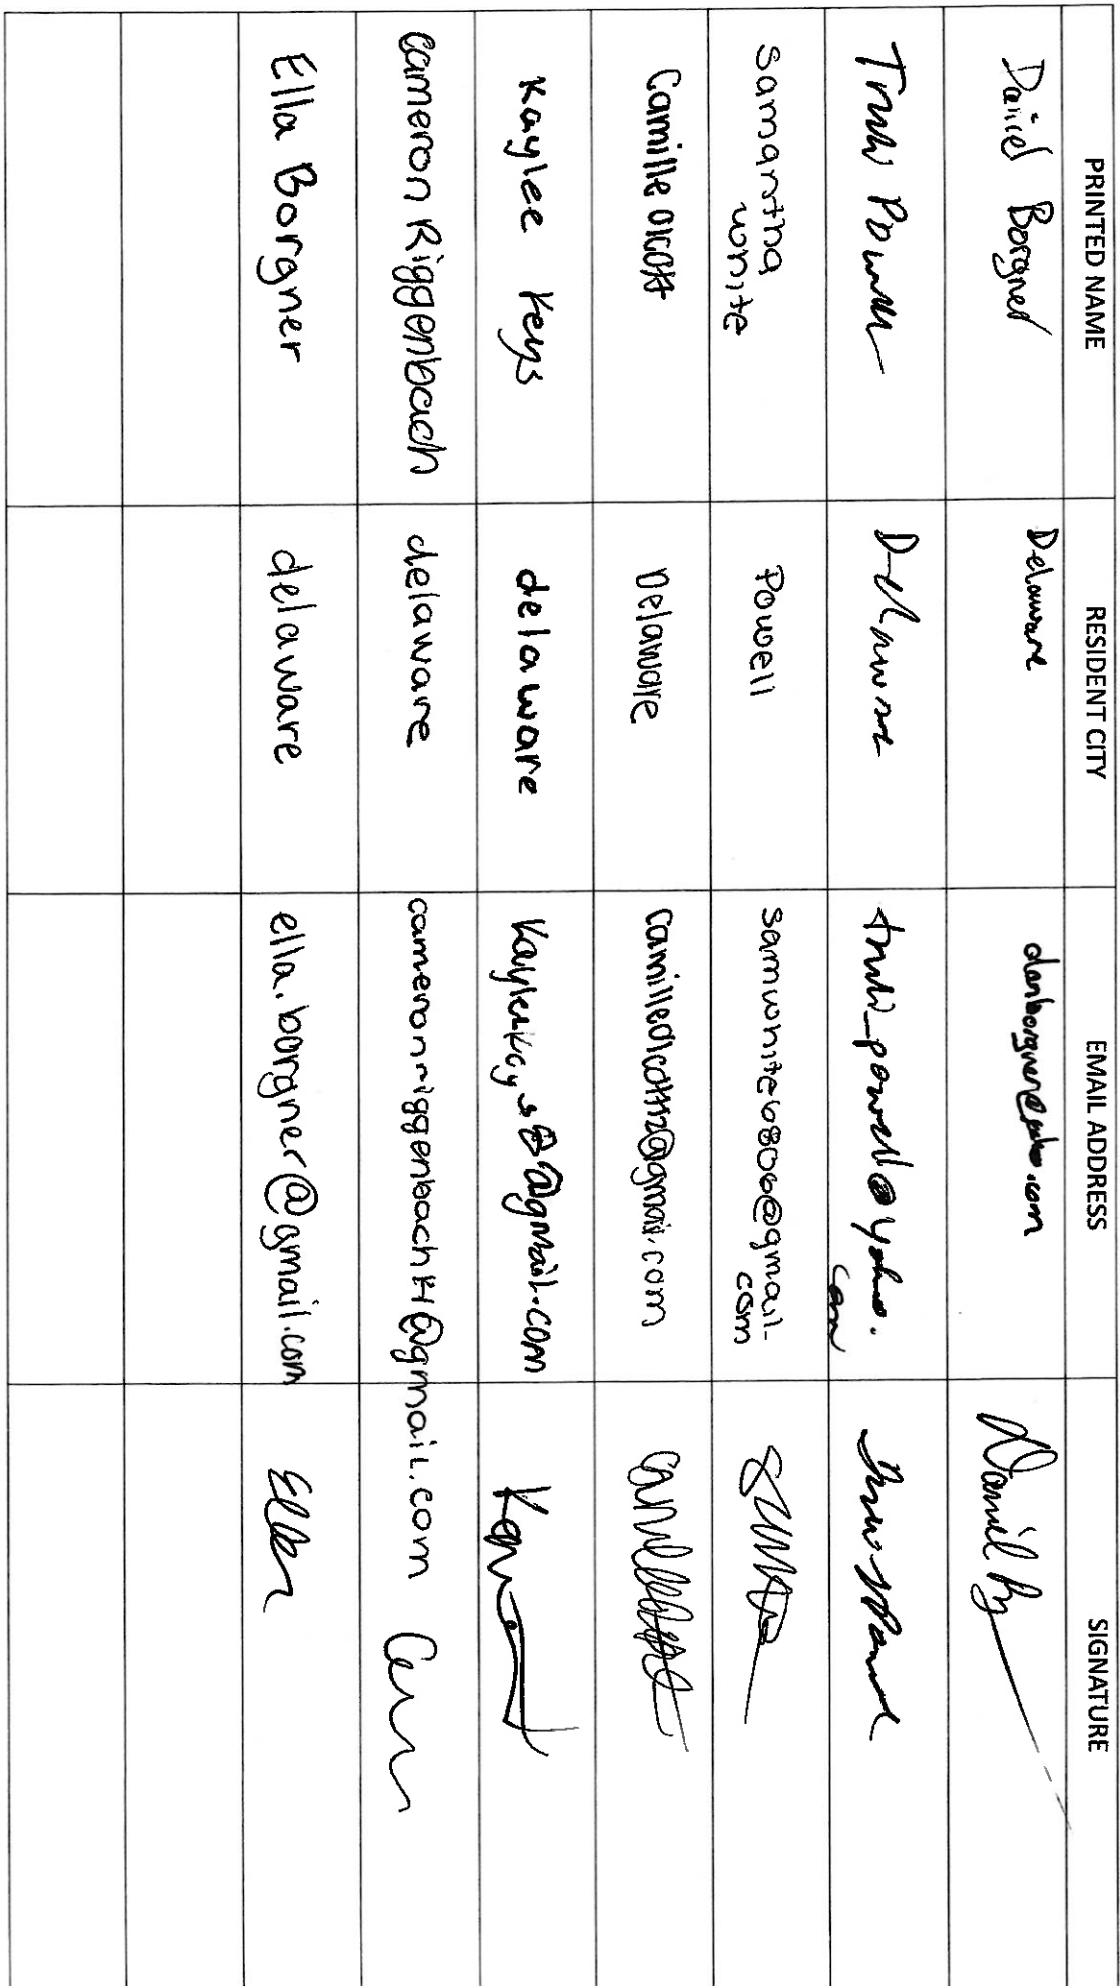 PRINTED NAME RESIDENT CITY EMAIL ADDRESS SIGNATURE
Daniel Borgner Delaware danborgner@yahoo.com
Powell Delaware powell@yahoo.
com
Samantha Powell samwhite6806@gmail.
white com
Camille Olcott Delaware camilleolcott12@gmail.com
Kaylee Keys delaware @gmail.com
Cameron Riggenbach delaware cameronriggenbach14@gmail.com
Ella Borgner delaware ella.borgner@gmail.com Ella